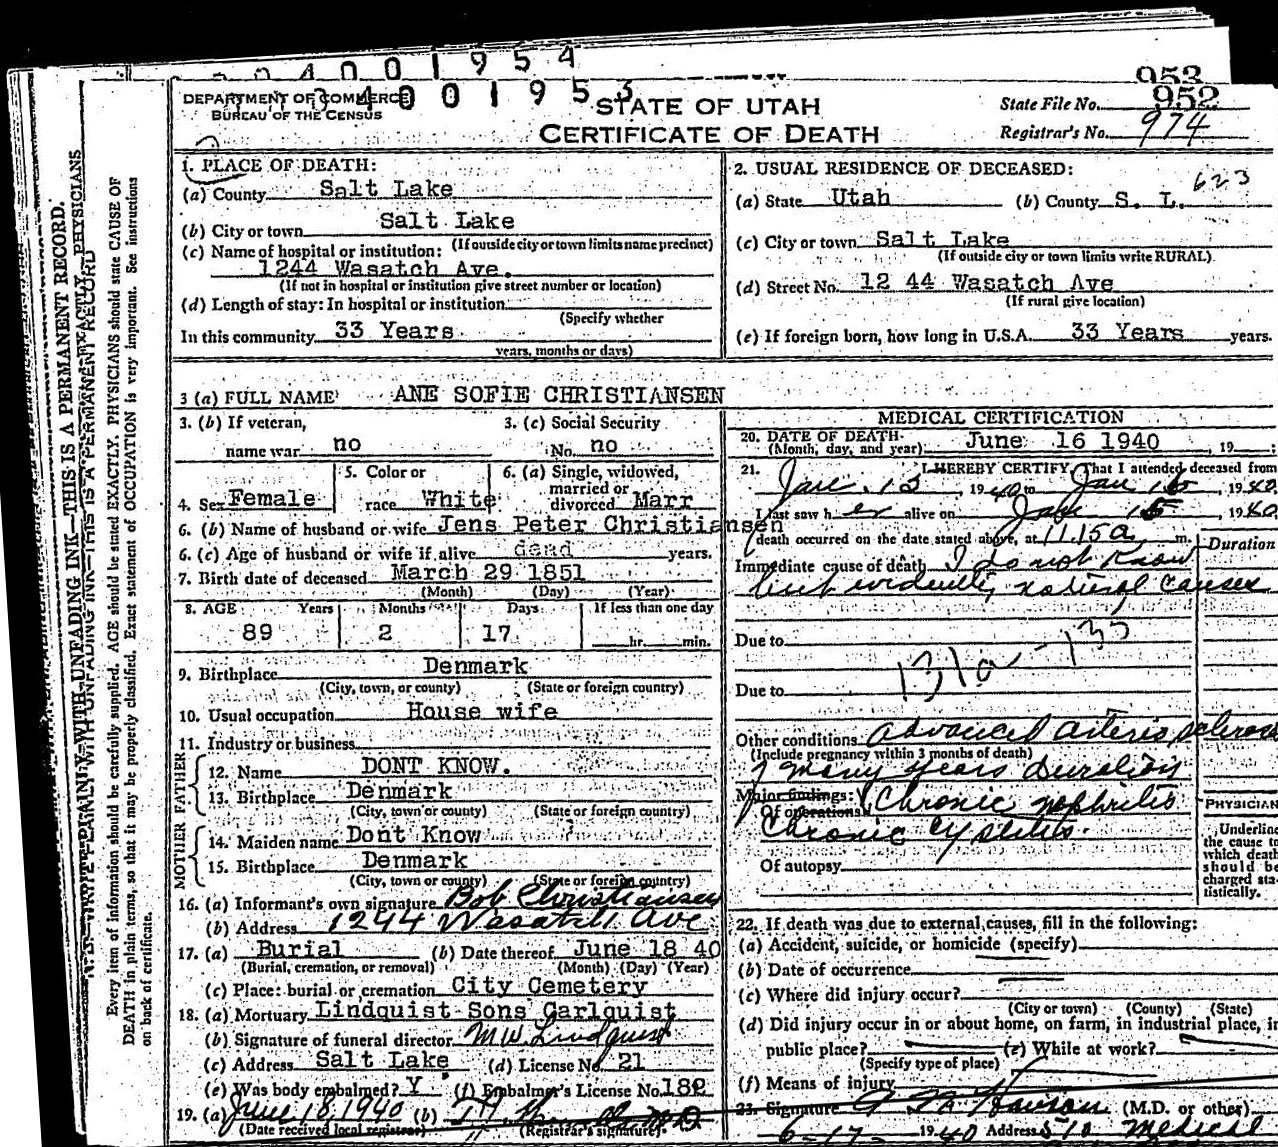 400195 4
3 4 0 0 1 9 5 3
953
952
DEPARTMENT OF COMMERCE
BUREAU OF THE CENSUS
STATE OF UTAH
CERTIFICATE OF DEATH
State File No.
Registrar's No. 974
1. PLACE OF DEATH:
(a) County Salt Lake
(b) City or town Salt Lake
(If outside city or town limits name precinct)
(c) Name of hospital or institution:
1244 Wasatch Ave.
(If not in hospital or institution give street number or location)
(d) Length of stay: In hospital or institution
(Specify whether
In this community 33 Years
years, months or days)
2. USUAL RESIDENCE OF DECEASED:
623
(a) State Utah (b) County S. L.
(c) City or town Salt Lake
(If outside city or town limits write RURAL)
(d) Street No. 12 44 Wasatch Ave
(If rural give location)
(e) If foreign born, how long in U.S.A. 33 Years years.
3 (a) FULL NAME ANE SOFIE CHRISTIANSEN
3. (b) If veteran, name war no
3. (c) Social Security No. no
4. Sex Female
5. Color or race White
6. (a) Single, widowed, married or divorced Marr
6. (b) Name of husband or wife Jens Peter Christiansen
6. (c) Age of husband or wife if alive dead years.
7. Birth date of deceased March 29 1851
(Month) (Day) (Year)
8. AGE Years Months Days If less than one day
89 2 17 hr. min.
9. Birthplace Denmark
(City, town, or county) (State or foreign country)
10. Usual occupation House wife
11. Industry or business
FATHER
12. Name DONT KNOW.
13. Birthplace Denmark
(City, town or county) (State or foreign country)
MOTHER
14. Maiden name Dont Know
15. Birthplace Denmark
(City, town or county) (State or foreign country)
16. (a) Informant's own signature Bob Christiansen
(b) Address 1244 Wasatch Ave
17. (a) Burial (b) Date thereof June 18 40
(Burial, cremation, or removal) (Month) (Day) (Year)
(c) Place: burial or cremation City Cemetery
18. (a) Mortuary Lindquist Sons Carlquist
(b) Signature of funeral director M W Lindquist
(c) Address Salt Lake (d) License No. 21
(e) Was body embalmed? Y (f) Embalmer's License No. 182
19. (a) June 18, 1940 (b)
(Date received local registrar) (Registrar's signature)
MEDICAL CERTIFICATION
20. DATE OF DEATH June 16 1940, 19
(Month, day, and year)
21. I HEREBY CERTIFY, That I attended deceased from
Jan. 13, 1940 to Jan 15, 1940
I last saw her alive on Jan 15, 1940
death occurred on the date stated above, at 11.15 a m.
Duration
Immediate cause of death I do not know
but evidently natural causes
Due to
131a - 133
Due to
Other conditions Advanced arteriosclerosis
(Include pregnancy within 3 months of death)
of many years duration
Major findings: Chronic nephritis
Of operations
Chronic cystitis.
Of autopsy
PHYSICIAN
Underline
the cause to
which death
should be
charged sta-
tistically.
22. If death was due to external causes, fill in the following:
(a) Accident, suicide, or homicide (specify)
(b) Date of occurrence
(c) Where did injury occur?
(City or town) (County) (State)
(d) Did injury occur in or about home, on farm, in industrial place, in
public place? (e) While at work?
(Specify type of place)
(f) Means of injury
23. Signature Hanson (M.D. or other)
6-17- 1940 Address 510 Medical
N. B.—WRITE PLAINLY WITH UNFADING INK—THIS IS A PERMANENT RECORD.
Every item of information should be carefully supplied. AGE should be stated EXACTLY. PHYSICIANS should state CAUSE OF
DEATH in plain terms, so that it may be properly classified. Exact statement of OCCUPATION is very important. See instructions
on back of certificate.